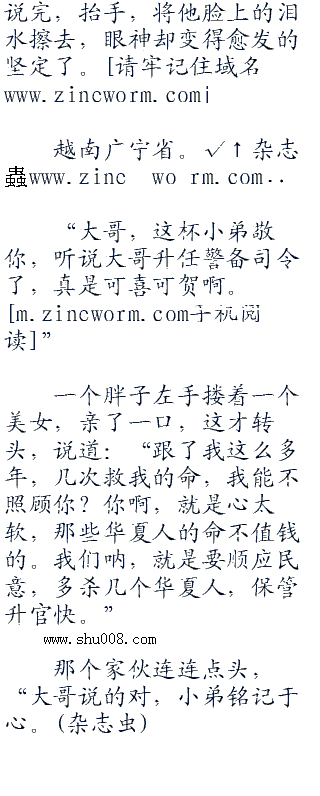 说完，抬手，将他脸上的泪
水擦去，眼神却变得愈发的
坚定了。[请牢记住域名
www.zincworm.com|
越南广宁省。√↑杂志
蟲www.zinc wo rm.com..
“大哥，这杯小弟敬
你，听说大哥升任警备司令
了，真是可喜可贺啊。
[m.zincworm.com手机阅
读]”
一个胖子左手搂着一个
美女，亲了一口，这才转
头，说道：“跟了我这么多
年，几次救我的命，我能不
照顾你？你啊，就是心太
软，那些华夏人的命不值钱
的。我们呐，就是要顺应民
意，多杀几个华夏人，保管
升官快。”
www.shu008.com
那个家伙连连点头，
“大哥说的对，小弟铭记于
心。(杂志虫)